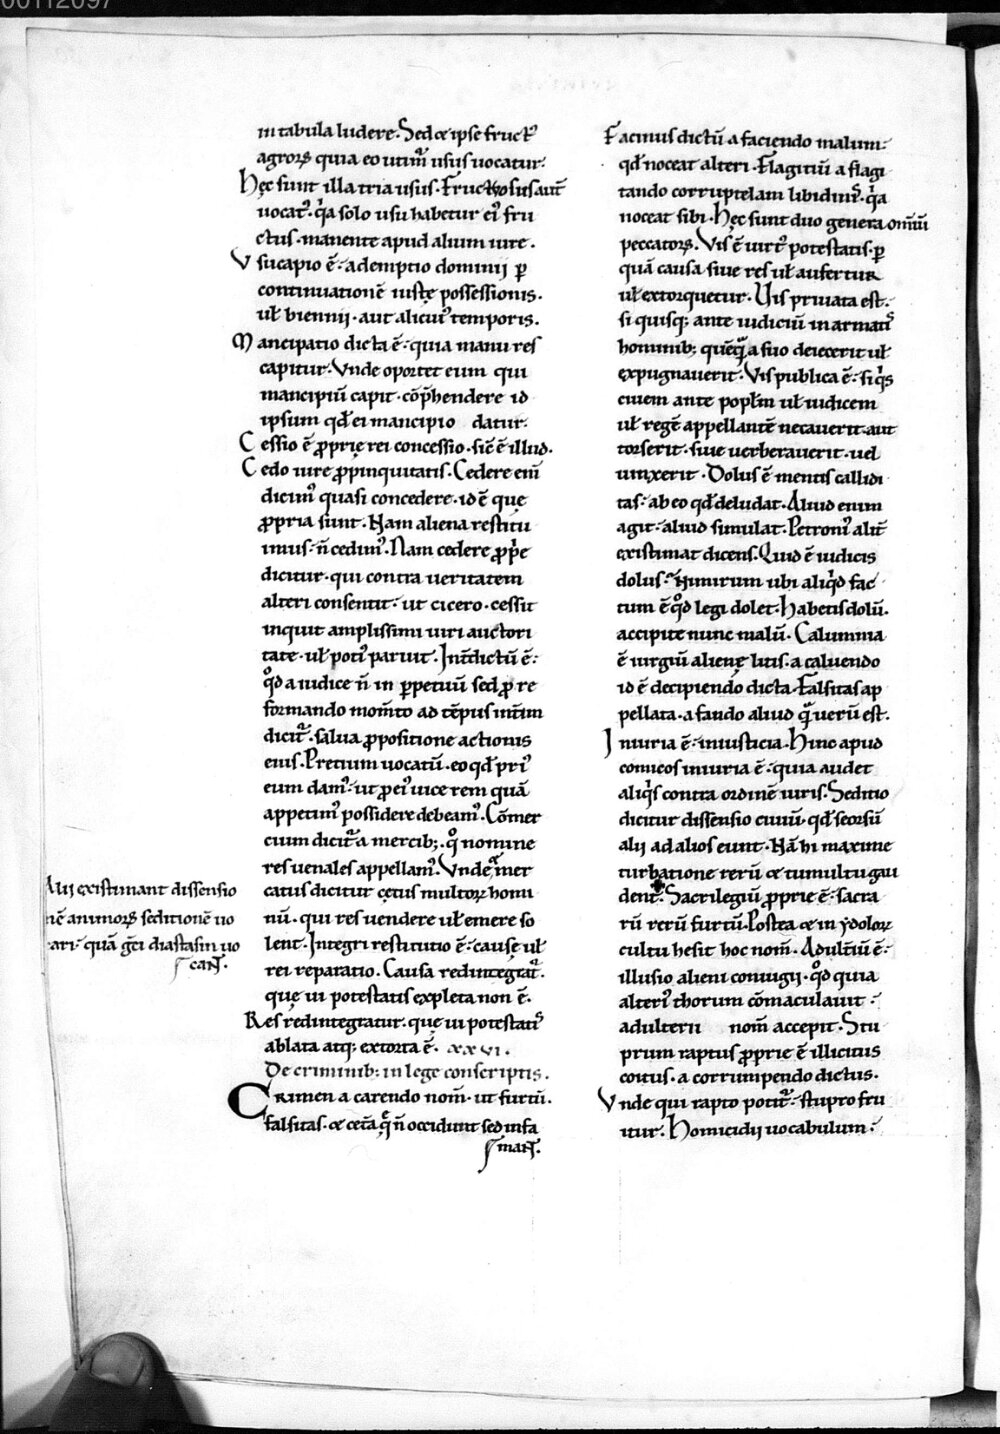 in tabula ludere. Sed & ipse fruct᷒
agroꝝ quia eo utim᷒ usus uocatur.
Hęc sunt illa tria usus. Fructus usus aut̄
uocat᷒. q̇a solo usu habetur ei᷒ fru
ctus. manente apud alium iure.
Vsucapio ē. ademptio dominij ꝑ
continuationē iustę possessionis.
ul̄ biennij. aut alicui᷒ temporis.
Mancipatio dicta ē. quia manu res
capitur. Vnde oportet eum qui
mancipiū capit. cōp̄hendere id
ipsum qd̄ ei mancipio datur.
Cessio ē ꝓprię rei concessio. sic̄ ē illud.
Cedo iure ꝓpinquitatis. Cedere enī
dicim᷒ quasi concedere. id ē que
ꝓpria sunt. Nam aliena restitu
imus. n̄ cedim᷒. Nam cedere ꝓp̄e
dicitur. qui contra ueritatem
alteri consentit. ut cicero. cessit
inquit amplissimi uiri auctori
tate. ul̄ poti᷒ paruit. Int̄dictū ē.
qd̄ a iudice n̄ in ꝑpetuū sed ꝓ re
formando mom̄to ad tēpus int̄im
dicit᷒. salua ꝓpositione actionis
eius. Pretium uocatū. eo qd̄ pri᷒
eum dam᷒. ut ꝓ ei᷒ uice rem quā
appetim᷒ possidere debeam᷒. Cōmer
cium dicit᷒ a mercib;. q̊ nomine
res uenales appellam᷒. Vnde mer
catus dicitur cętus multoꝝ homi
nū. qui res uendere ul̄ emere so
lent. Integri restitutio ē. causę ul̄
rei reparatio. Causa redintegrat᷒.
quę ui potestatis expleta non ē.
Res redintegratur. quę ui potestati᷒
ablata atq; extorta ē. xxvi.
De criminib; in lege conscriptis.
Crimen a carendo nom̄. ut furtū.
falsitas. & cet̄a q̄ n̄ occidunt sed infa
mant.
Alij existimant dissensio
nē animoꝝ seditionē uo
cari. quā gr̄ci diastasin uo
cant.
Facinus dictū a faciendo malum.
qd̄ noceat alteri. Flagitiū a flagi
tando corruptelam libidini᷒. q̇a
noceat sibi. Hęc sunt duo genera omīū
peccatoꝝ. Vis ē uirt᷒ potestatis. ꝑ
quā causa siue res ul̄ aufertur
ul̄ extorquetur. Vis priuata est.
si quisq; ante iudiciū in armati᷒
hominib; quēq̄ a suo deiecerit ul̄
expugnauerit. Vis publica ē. si q̇s
ciuem ante popl̄m ul̄ iudicem
ul̄ regē appellantē necauerit. aut
torserit. siue uerberauerit. uel
uinxerit. Dolus ē mentis callidi
tas. ab eo qd̄ deludat. Aliud enim
agit. aliud simulat. Petroni᷒ alit̄
existimat dicens. Quid ē iudicis
dolus. Nimirum ubi aliq̇d fac
tum ē qd̄ legi dolet. Habetis dolū.
accipite nunc malū. Calumnia
ē iurgiū alienę litis. a caluendo
id ē decipiendo dicta. Falsitas ap
pellata. a fando aliud q̄ uerū est.
Iniuria ē. iniusticia. Hinc apud
comicos iniuria ē. quia audet
aliq̇s contra ordinē iuris. Seditio
dicitur dissensio ciuiū. qd̄ seorsū
alij ad alios eunt. Nā hi maxime
turbatione rerū & tumultu gau
dent. Sacrilegiū ꝓprie ē. sacra
rū rerū furtū. Postea & in ydoloꝝ
cultu hesit hoc nom̄. Adult̄iū ē.
illusio alieni coniugij. qd̄ quia
alteri᷒ thorum cōmaculauit.
adulterii nom̄ accepit. Stu
prum raptus ꝓprie ē illicitus
coitus. a corrumpendo dictus.
Vnde qui rapto potit᷒. stupro fru
itur. Homicidij uocabulum.